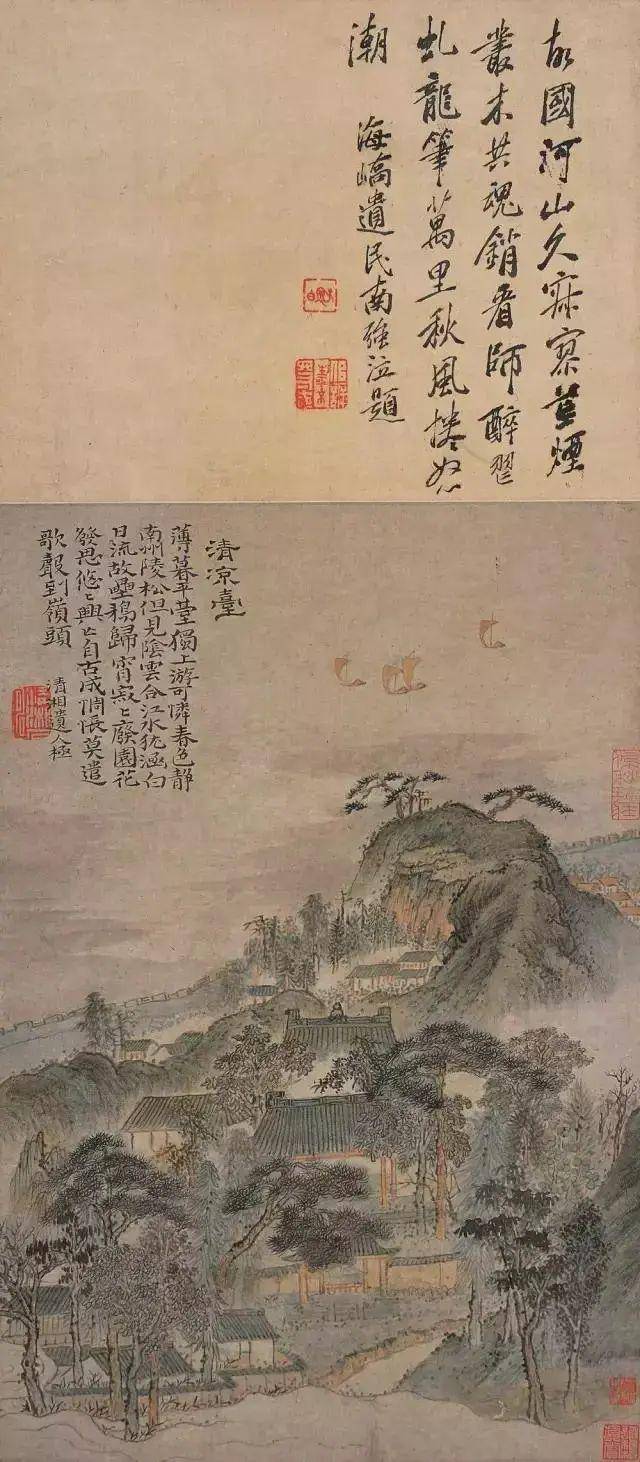 故國河山久寂寥 煙
叢木共魂銷看師醉
虬龍筆萬里秋風捲怒
潮
海嶠遺民南強泣題
清凉臺
薄暮平臺獨上游可憐春色静
南州陵松但見陰雲合江水猶涵白
日流故壘鴉歸宵寂〻廢園花
發思悠〻興亡自古成惆悵莫遣
歌聲到嶺頭
清湘遺人極